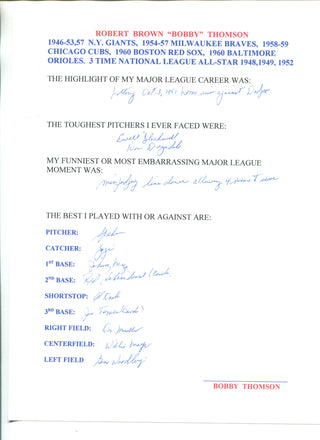 ROBERT BROWN "BOBBY" THOMSON
1946-53,57 N.Y. GIANTS, 1954-57 MILWAUKEE BRAVES, 1958-59
CHICAGO CUBS, 1960 BOSTON RED SOX, 1960 BALTIMORE
ORIOLES. 3 TIME NATIONAL LEAGUE ALL-STAR 1948,1949, 1952
THE HIGHLIGHT OF MY MAJOR LEAGUE CAREER WAS:
Hitting Oct. 3, 1951 home run against
THE TOUGHEST PITCHERS I EVER FACED WERE:
Ewell Blackwell
Don Drysdale
MY FUNNIEST OR MOST EMBARRASSING MAJOR LEAGUE
MOMENT WAS:
misjudging line drive allowing to score
THE BEST I PLAYED WITH OR AGAINST ARE:
PITCHER:
CATCHER:
1ST BASE: Johnny Mize
2ND BASE: Red Schoendienst
SHORTSTOP:
3RD BASE:
RIGHT FIELD: Don Mueller
CENTERFIELD: Willie Mays
LEFT FIELD Gene Woodling
BOBBY THOMSON